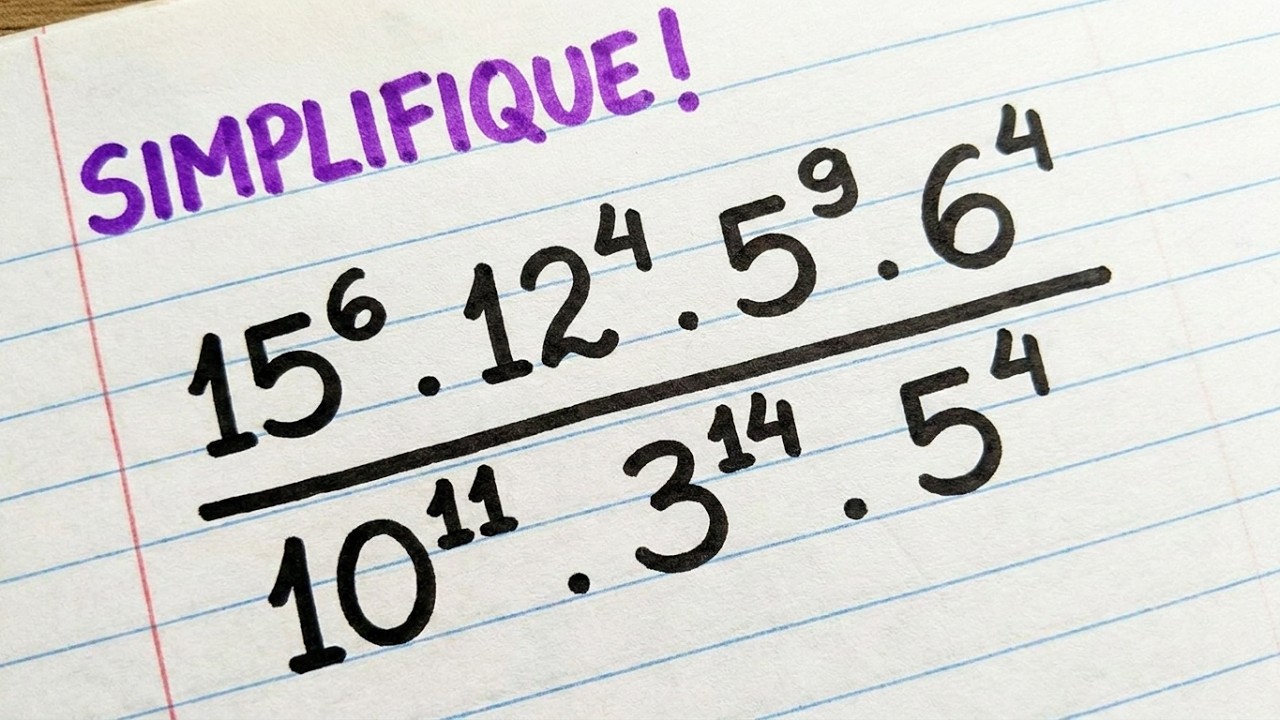 SIMPLIFIQUE!
15⁶ . 12⁴ . 5⁹ . 6⁴
10¹¹ . 3¹⁴ . 5⁴